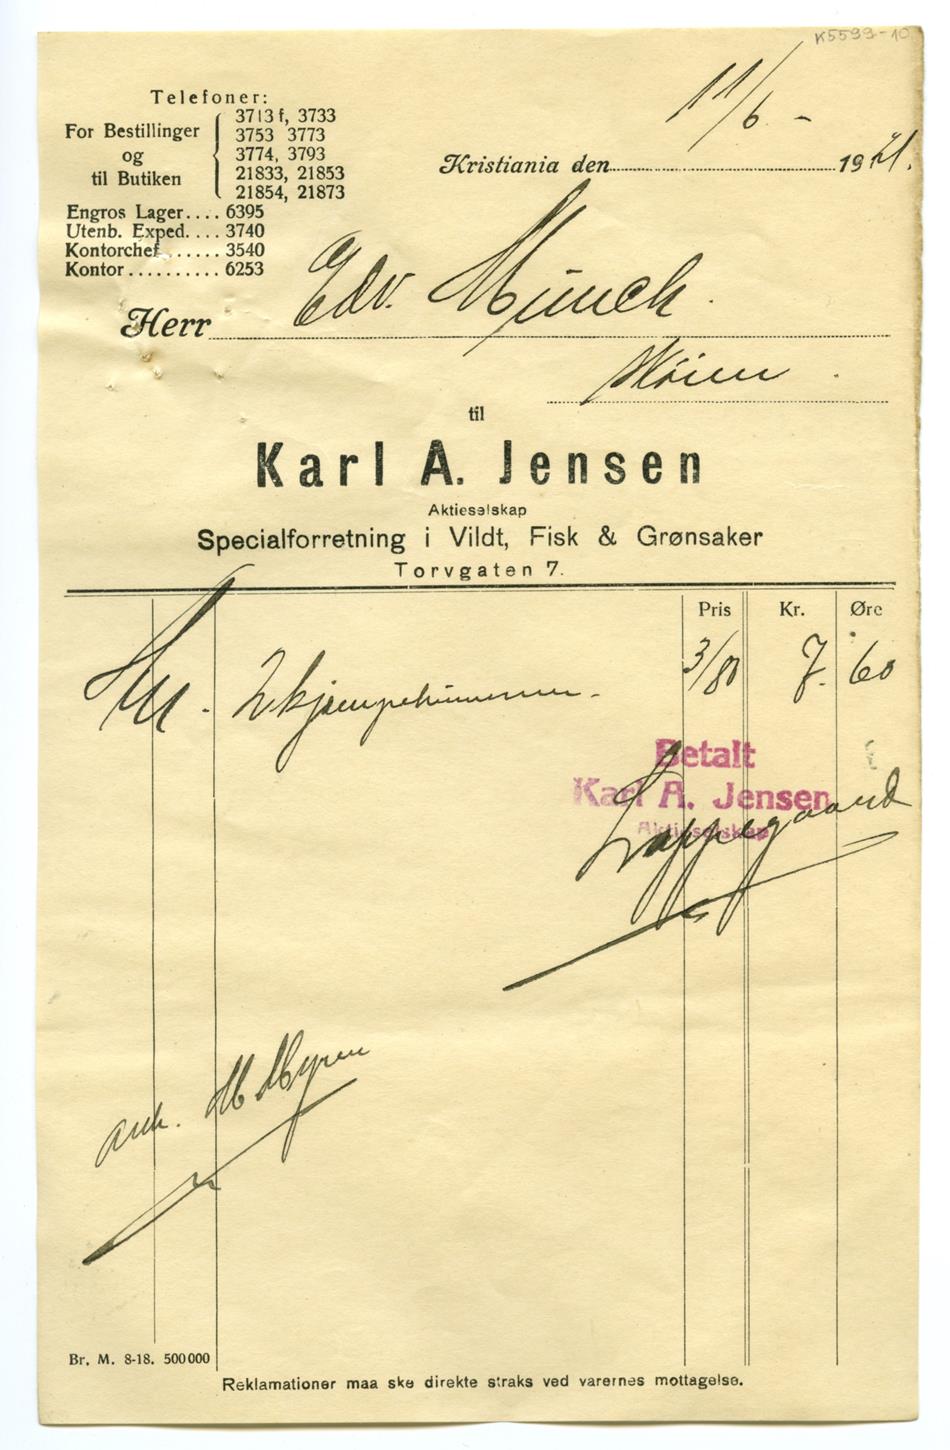 K5599-10
11/6 -
Telefoner:
For Bestillinger og til Butiken
3713 f, 3733
3753 3773
3774, 3793
21833, 21853
21854, 21873
Engros Lager.... 6395
Utenb. Exped. ... 3740
Kontorchef ...... 3540
Kontor .......... 6253
Kristiania den 1921.
Herr Edv. Munch.
Skøien.
til
Karl A. Jensen
Aktieselskap
Specialforretning i Vildt, Fisk & Grønsaker
Torvgaten 7.
Pris Kr. Øre
2 kjæmpehummer. 3/80 7. 60
Betalt
Karl A. Jensen
Aktieselskap
Loppegaard
M Myren
Br. M. 8-18. 500000
Reklamationer maa ske direkte straks ved varernes mottagelse.